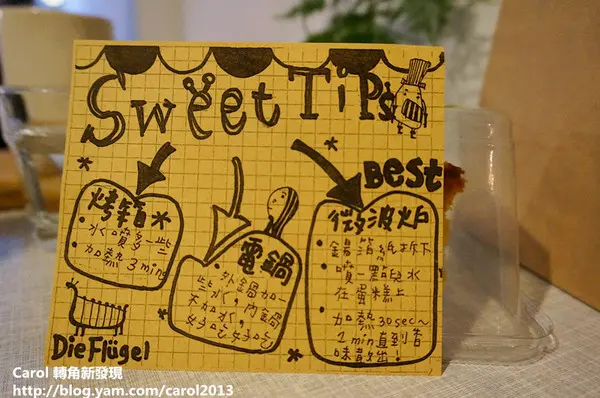 Sweet Tips
Best
烤箱
水噴多一些
加熱3min
電鍋
外鍋加一
些水,內鍋
不加水,
好吃好吃
微波爐
錫箔紙拆下
噴一點兒水
在蛋糕上
加熱30sec~
1min直到香
味散出!
Die Flügel
Carol 轉角新發現
http://blog.yam.com/carol2013